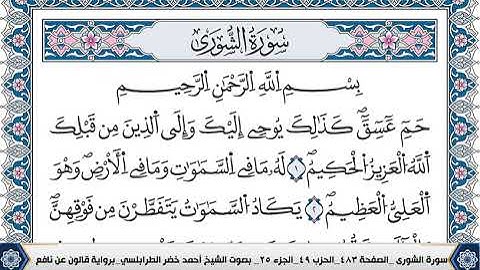 سُورَةُ الشُّورَى
بِسْمِ اِللَّهِ اِلرَّحْمَٰنِ اِلرَّحِيمِ
حَمِ عَسِقَ كَذَٰلِكَ يُوحِے إِلَيْكَ وَإِلَى اَلذِينَ مِن قَبْلِكَ
اَللَّهُ اُلْعَزِيزُ اُلْحَكِيمُ ١ لَهُۥ مَا فِے اِلسَّمَٰوَٰتِ وَمَا فِے اِلْأَرْضِ وَهْوَ
اَلْعَلِيُّ اُلْعَظِيمُ ٢ يَكَادُ اُلسَّمَٰوَٰتُ يَتَفَطَّرْنَ مِن فَوْقِهِنَّ
سورة الشورى _الصفحة ٤٨٣_الحزب ٤٩_الجزء ٢٥_ بصوت الشيخ أحمد خضر الطرابلسي_برواية قالون عن نافع